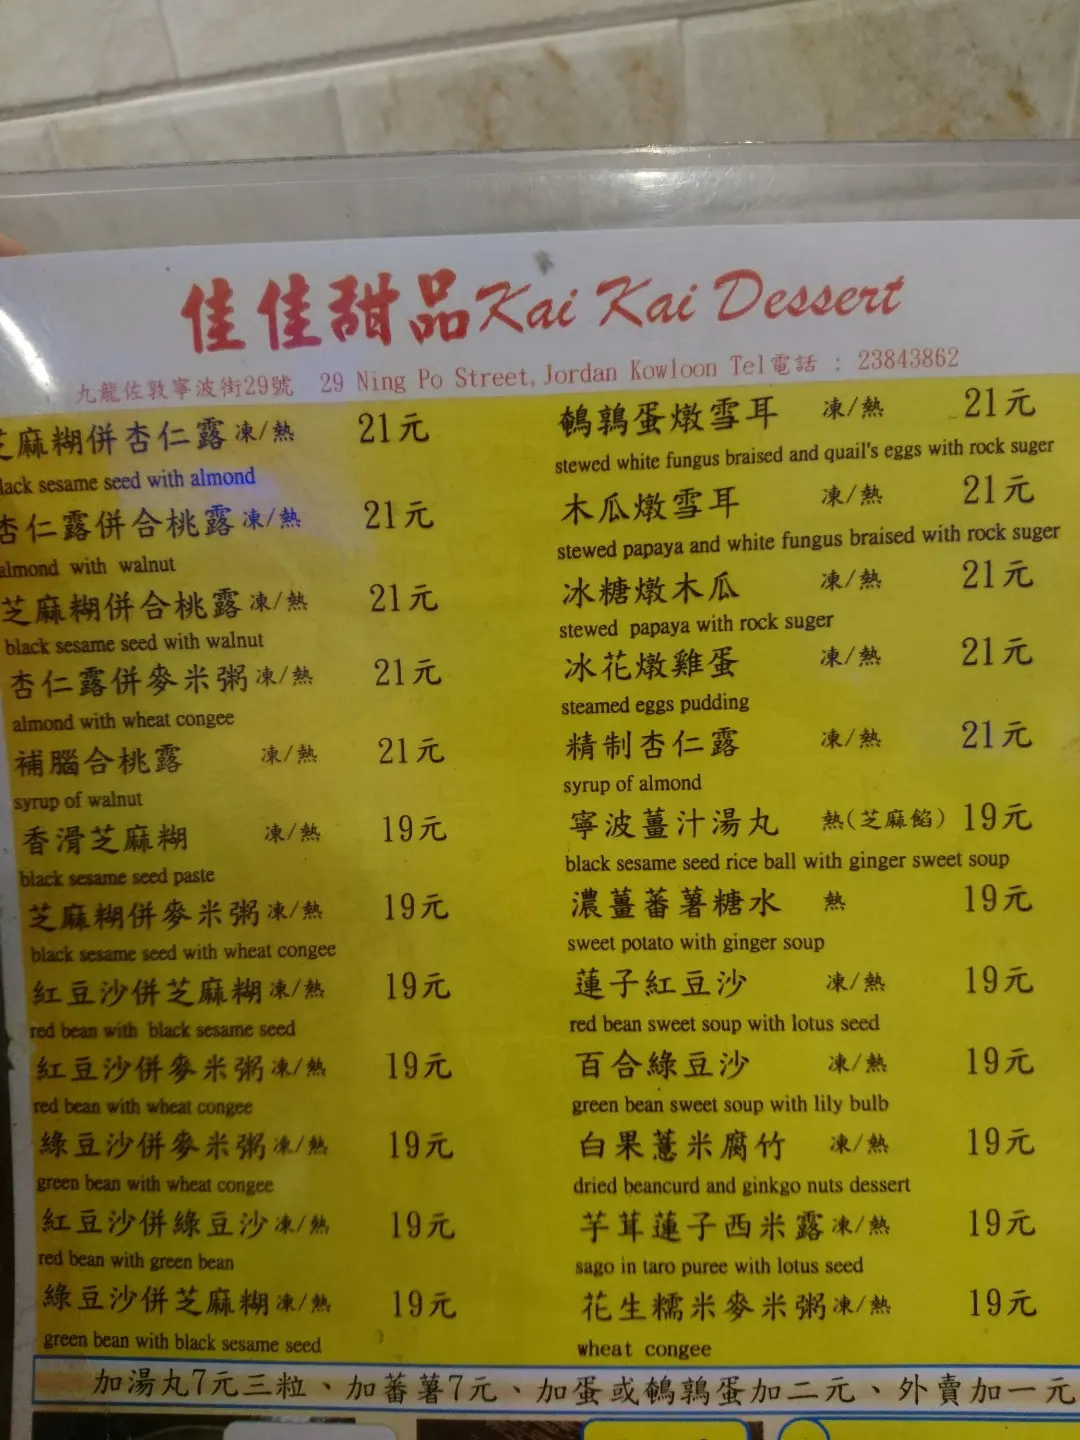 佳佳甜品Kai Kai Dessert
九龍佐敦寧波街29號 29 Ning Po Street,Jordan Kowloon Tel電話 : 23843862
芝麻糊併杏仁露 凍/熱 21元
lack sesame seed with almond
杏仁露併合桃露 凍/熱 21元
almond with walnut
芝麻糊併合桃露 凍/熱 21元
black sesame seed with walnut
杏仁露併麥米粥 凍/熱 21元
almond with wheat congee
補腦合桃露 凍/熱 21元
syrup of walnut
香滑芝麻糊 凍/熱 19元
black sesame seed paste
芝麻糊併麥米粥 凍/熱 19元
black sesame seed with wheat congee
紅豆沙併芝麻糊 凍/熱 19元
red bean with black sesame seed
紅豆沙併麥米粥 凍/熱 19元
red bean with wheat congee
綠豆沙併麥米粥 凍/熱 19元
green bean with wheat congee
紅豆沙併綠豆沙 凍/熱 19元
red bean with green bean
綠豆沙併芝麻糊 凍/熱 19元
green bean with black sesame seed
鵪鶉蛋燉雪耳 凍/熱 21元
stewed white fungus braised and quail's eggs with rock suger
木瓜燉雪耳 凍/熱 21元
stewed papaya and white fungus braised with rock suger
冰糖燉木瓜 凍/熱 21元
stewed papaya with rock suger
冰花燉雞蛋 凍/熱 21元
steamed eggs pudding
精制杏仁露 凍/熱 21元
syrup of almond
寧波薑汁湯丸 熱(芝麻餡) 19元
black sesame seed rice ball with ginger sweet soup
濃薑蕃薯糖水 熱 19元
sweet potato with ginger soup
蓮子紅豆沙 凍/熱 19元
red bean sweet soup with lotus seed
百合綠豆沙 凍/熱 19元
green bean sweet soup with lily bulb
白果薏米腐竹 凍/熱 19元
dried beancurd and ginkgo nuts dessert
芋茸蓮子西米露 凍/熱 19元
sago in taro puree with lotus seed
花生糯米麥米粥 凍/熱 19元
wheat congee
加湯丸7元三粒、加蕃薯7元、加蛋或鵪鶉蛋加二元、外賣加一元